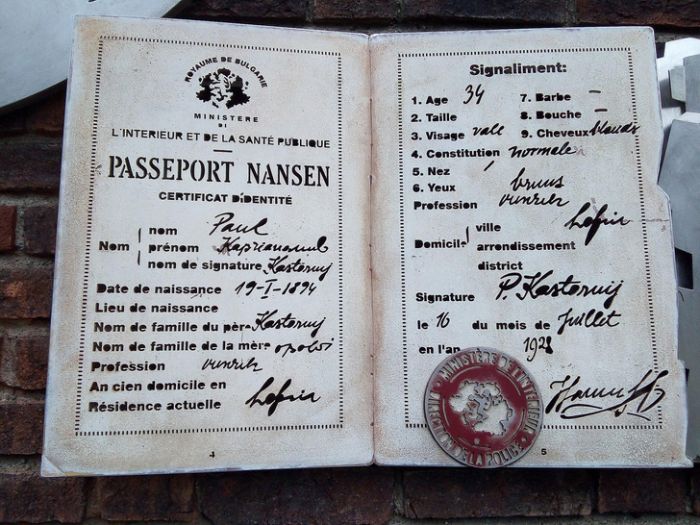 ROYAUME DE BULGARIE
MINISTERE
DI
L'INTERIEUR ET DE LA SANTÉ PUBLIQUE
PASSEPORT NANSEN
CERTIFICAT D'IDENTITÉ
Nom
nom Paul
prénom
nom de signature Kasternij
Date de naissance 19-I-1894
Lieu de naissance
Nom de famille du père Kasternij
Nom de famille de la mère
Profession
An cien domicile en
Résidence actuelle
4
Signaliment:
1. Age 34
2. Taille
3. Visage
4. Constitution normale
5. Nez
6. Yeux bruns
7. Barbe –
8. Bouche –
9. Cheveux
Profession
Domicile
ville
arrondissement
district
Signature P. Kasternij
le 16 du mois de Juillet
en l'an 1928
MINISTÈRE DE L'INTERIEUR
DIRECTION DE LA POLICE
5